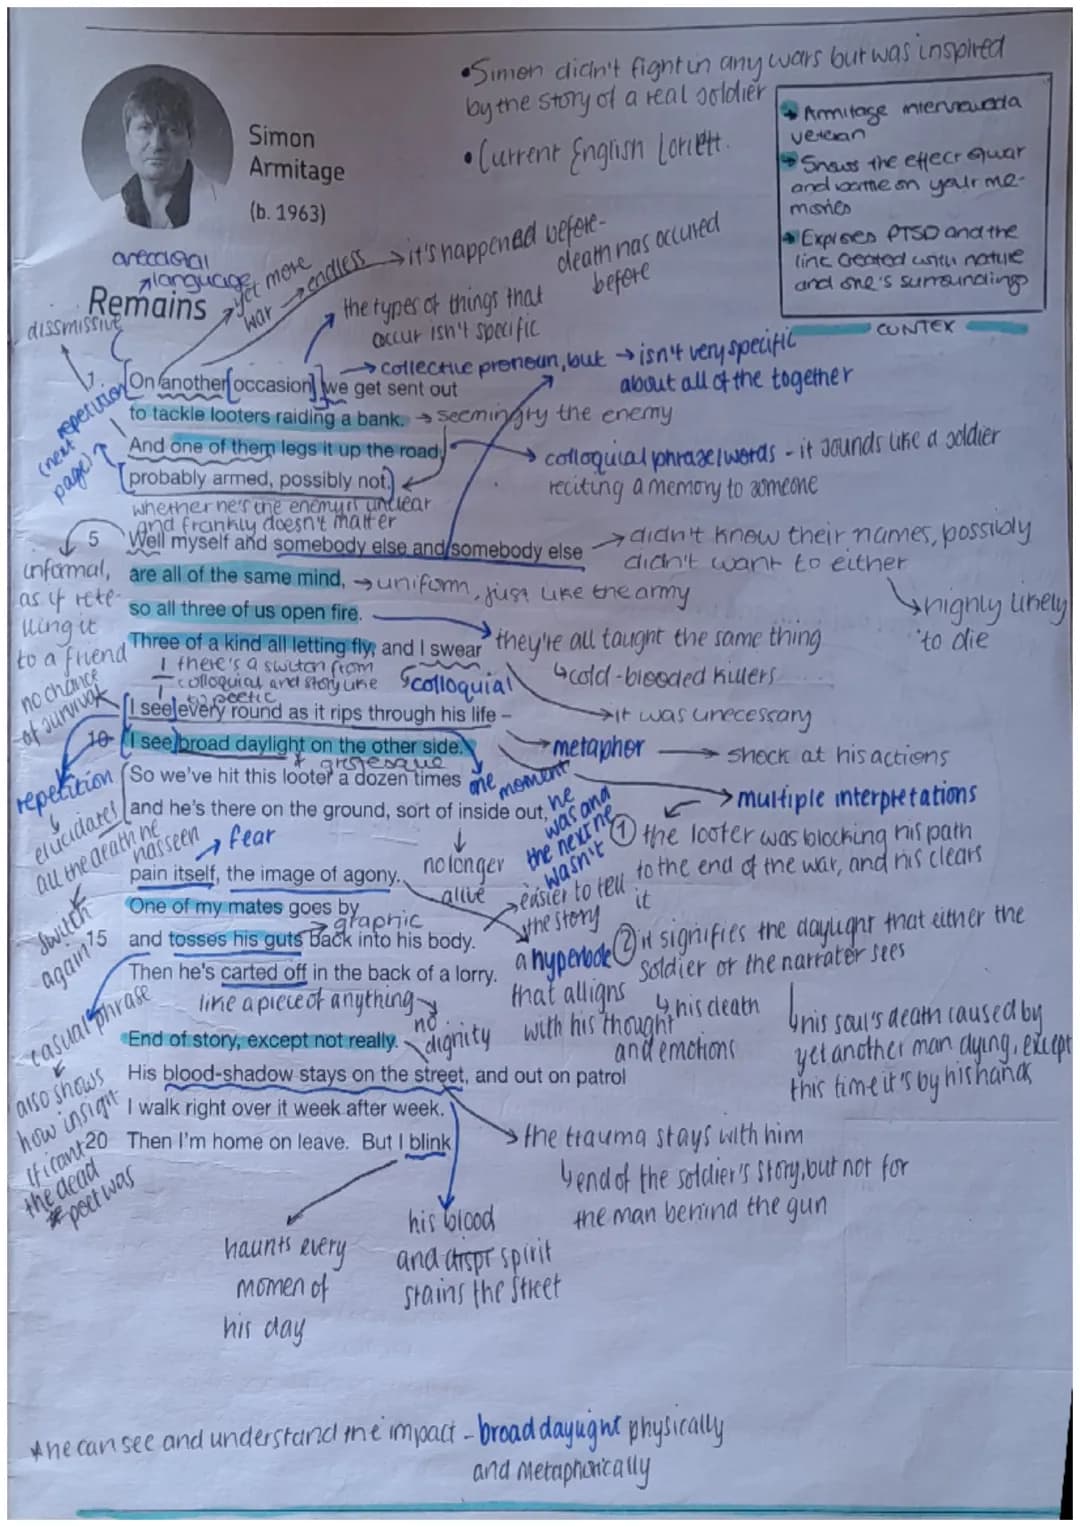 •Simon didn't fight in any wars but was inspired
by the story of a real soldier
• Current English Loriett.
Simon
Armitage
(b. 1963)
→ Armitage interviewed a
veteran
→ Shows the effect of war
and battle on your me-
mories
→ Exposes PTSD and the
link created with nature
and one's surroundings
CONTEX
anecdotal
language
Remains
dissmissive
yet more
war → endless → it's happened before-
death has occured
before
the types of things that
occur isn't specific
→ collective pronoun, but → isn't very specific
about all of the together
repetition
(next
page)
On another occasion, we get sent out
to tackle looters raiding a bank. → seemingry the enemy
And one of them legs it up the road,
colloquial phrase/words - it sounds like a soldier
reciting a memory to someone
probably armed, possibly not.
whether he's the enemy is unclear
and frankly doesn't matter
5 Well myself and somebody else and somebody else
→ didn't know their names, possibly
didn't want to either
highly likely
to die
informal,
as if rete-
lling it
to a friend
are all of the same mind, → uniform, just like the army
so all three of us open fire.
they're all taught the same thing
↳cold-blooded killers
Three of a kind all letting fly, and I swear
there's a switch from
colloquial and story like
to poetic
colloquial
→it was unecessary
no chance
of survival
I see every round as it rips through his life –
10 I see broad daylight on the other side.
→metaphor → shock at his actions
* grotesque
repetition
elucidates
all the death he
has seen
So we've hit this looter a dozen times
and he's there on the ground, sort of inside out,
one moment
he
was and
the next he
wasn't
→ multiple interpretations
① the looter was blocking his path
to the end of the war, and his clears
it
→ fear
no longer
alive
pain itself, the image of agony.
→easier to tell
the story
switch
again
One of my mates goes by
→ graphic
15 and tosses his guts back into his body.
a hyperbole
that alligns
with his thought
and emotions
② it signifies the daylight that either the
soldier or the narrator sees
↳ his death
↳his soul's death caused by
yet another man dying, except
this time it's by his hands
Then he's carted off in the back of a lorry.
like a piece of anything
no
dignity
casual phrase
also shows
how insign-
ificant
the dead
poet was
End of story, except not really.
His blood-shadow stays on the street, and out on patrol
I walk right over it week after week.
20 Then I'm home on leave. But I blink
→ the trauma stays with him
↳end of the soldier's story, but not for
the man behind the gun
haunts every
momen of
his day
his blood
and spirit
stains the street
*he can see and understand the impact - broad daylight physically
and metaphorically